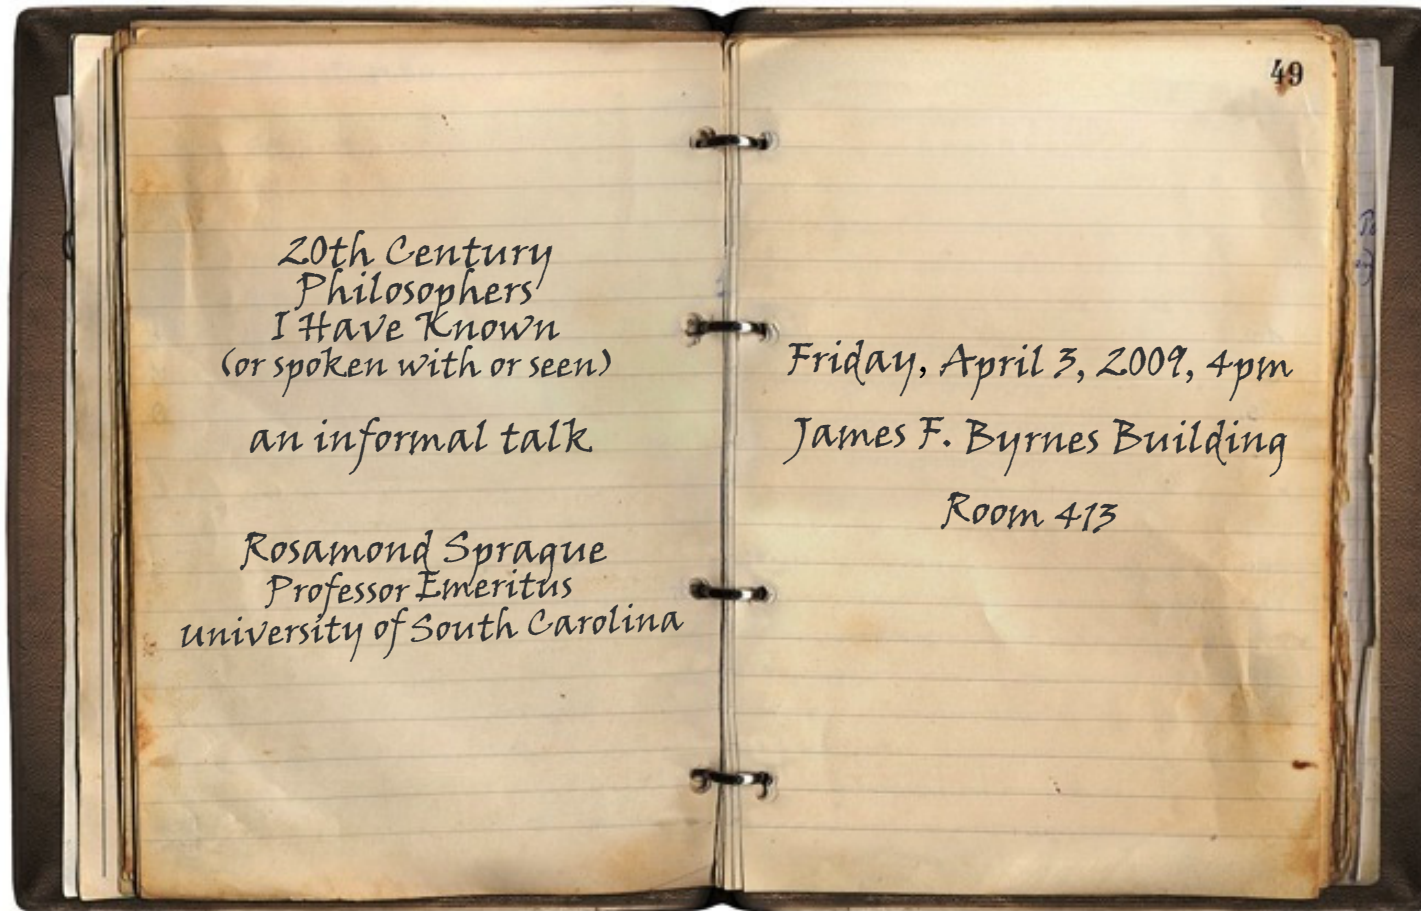 20th Century
Philosophers
I Have Known
(or spoken with or seen)
an informal talk
Rosamond Sprague
Professor Emeritus
University of South Carolina
49
Friday, April 3, 2009, 4pm
James F. Byrnes Building
Room 413